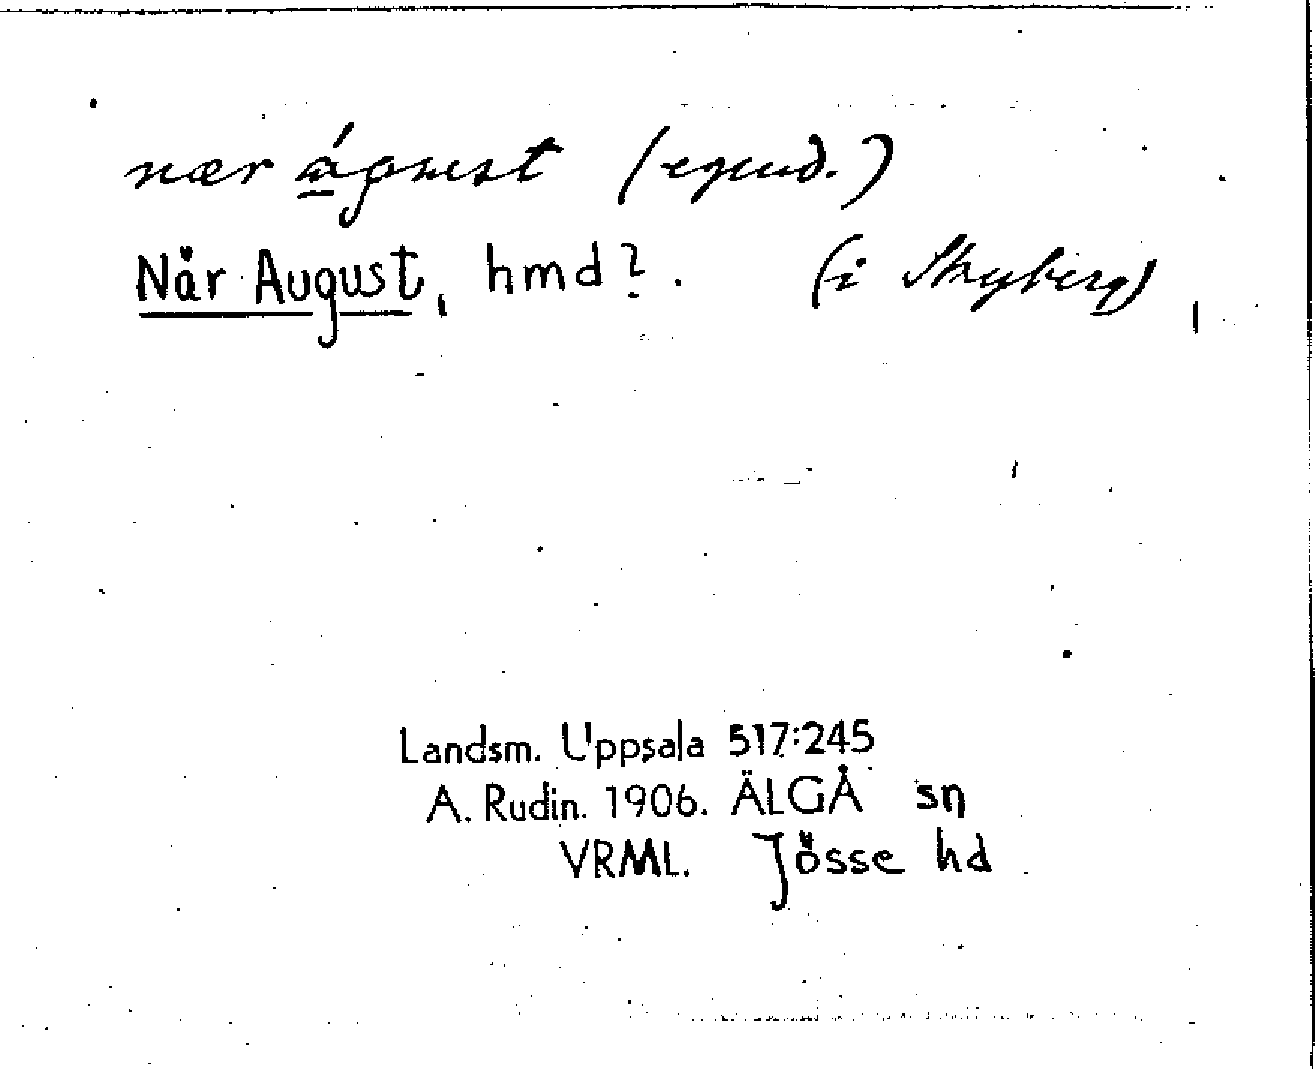 nær águst (egend.)
När August, hmd?. (i Skyberg)
Landsm. Uppsala 517:245
A. Rudin. 1906. ÄLGÅ sn
VRML. Jösse hd